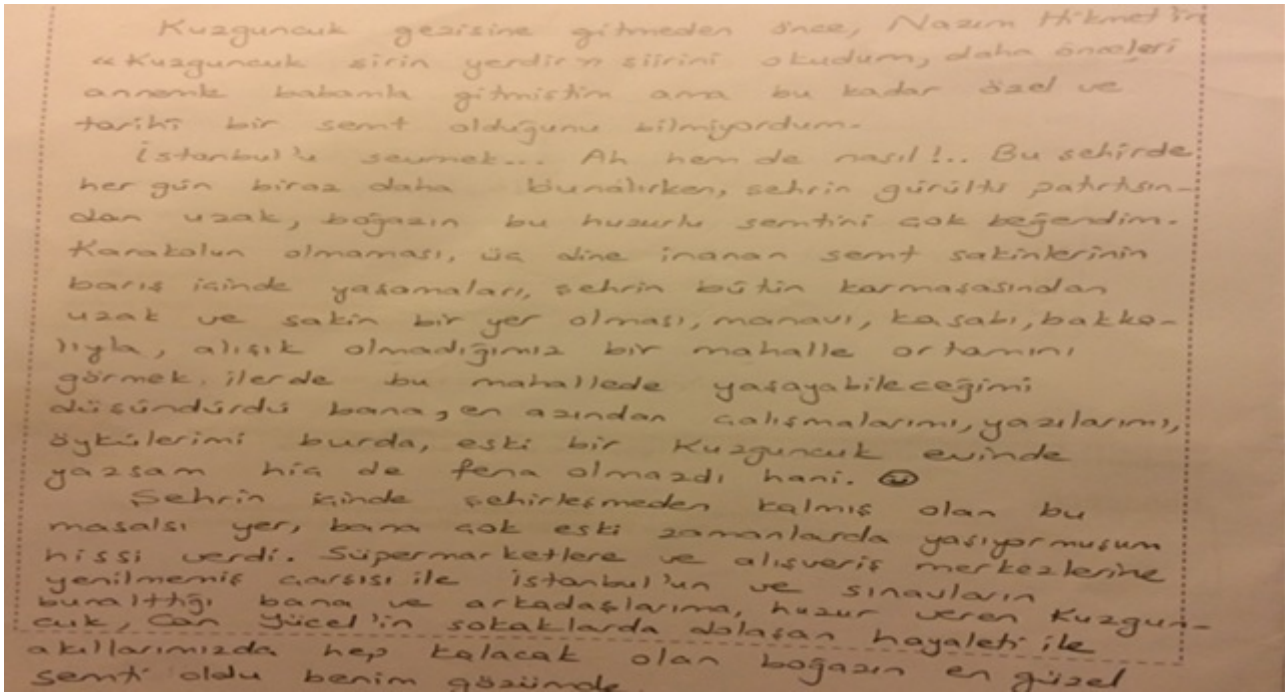 Kuzguncuk gezisine gitmeden önce, Nazım Hikmet'in
"Kuzguncuk şirin yerdir" şiirini okudum, daha önceleri
annemle babamla gitmiştim ama bu kadar özel ve
tarihî bir semt olduğunu bilmiyordum.
İstanbul'u sevmek... Ah hem de nasıl!.. Bu şehirde
her gün biraz daha bunalırken, şehrin gürültü patırtısın-
dan uzak, boğazın bu huzurlu semtini çok beğendim.
Karakolun olmaması, üç dine inanan semt sakinlerinin
barış içinde yaşamaları, şehrin bütün karmaşasından
uzak ve sakin bir yer olması, manavı, kasabı, bakka-
lıyla, alışık olmadığımız bir mahalle ortamını
görmek, ilerde bu mahallede yaşayabileceğimi
düşündürdü bana, en azından çalışmalarımı, yazılarımı,
öykülerimi burda, eski bir Kuzguncuk evinde
yazsam hiç de fena olmazdı hani. ☺
Şehrin içinde şehirleşmeden kalmış olan bu
masalsı yer, bana çok eski zamanlarda yaşıyormuşum
hissi verdi. Süpermarketlere ve alışveriş merkezlerine
yenilmemiş çarşısı ile İstanbul'un ve sınavların
bunalttığı bana ve arkadaşlarıma, huzur veren Kuzgun-
cuk, Can Yücel'in sokaklarda dolaşan hayaleti ile
akıllarımızda hep kalacak olan boğazın en güzel
semti oldu benim gözümde.